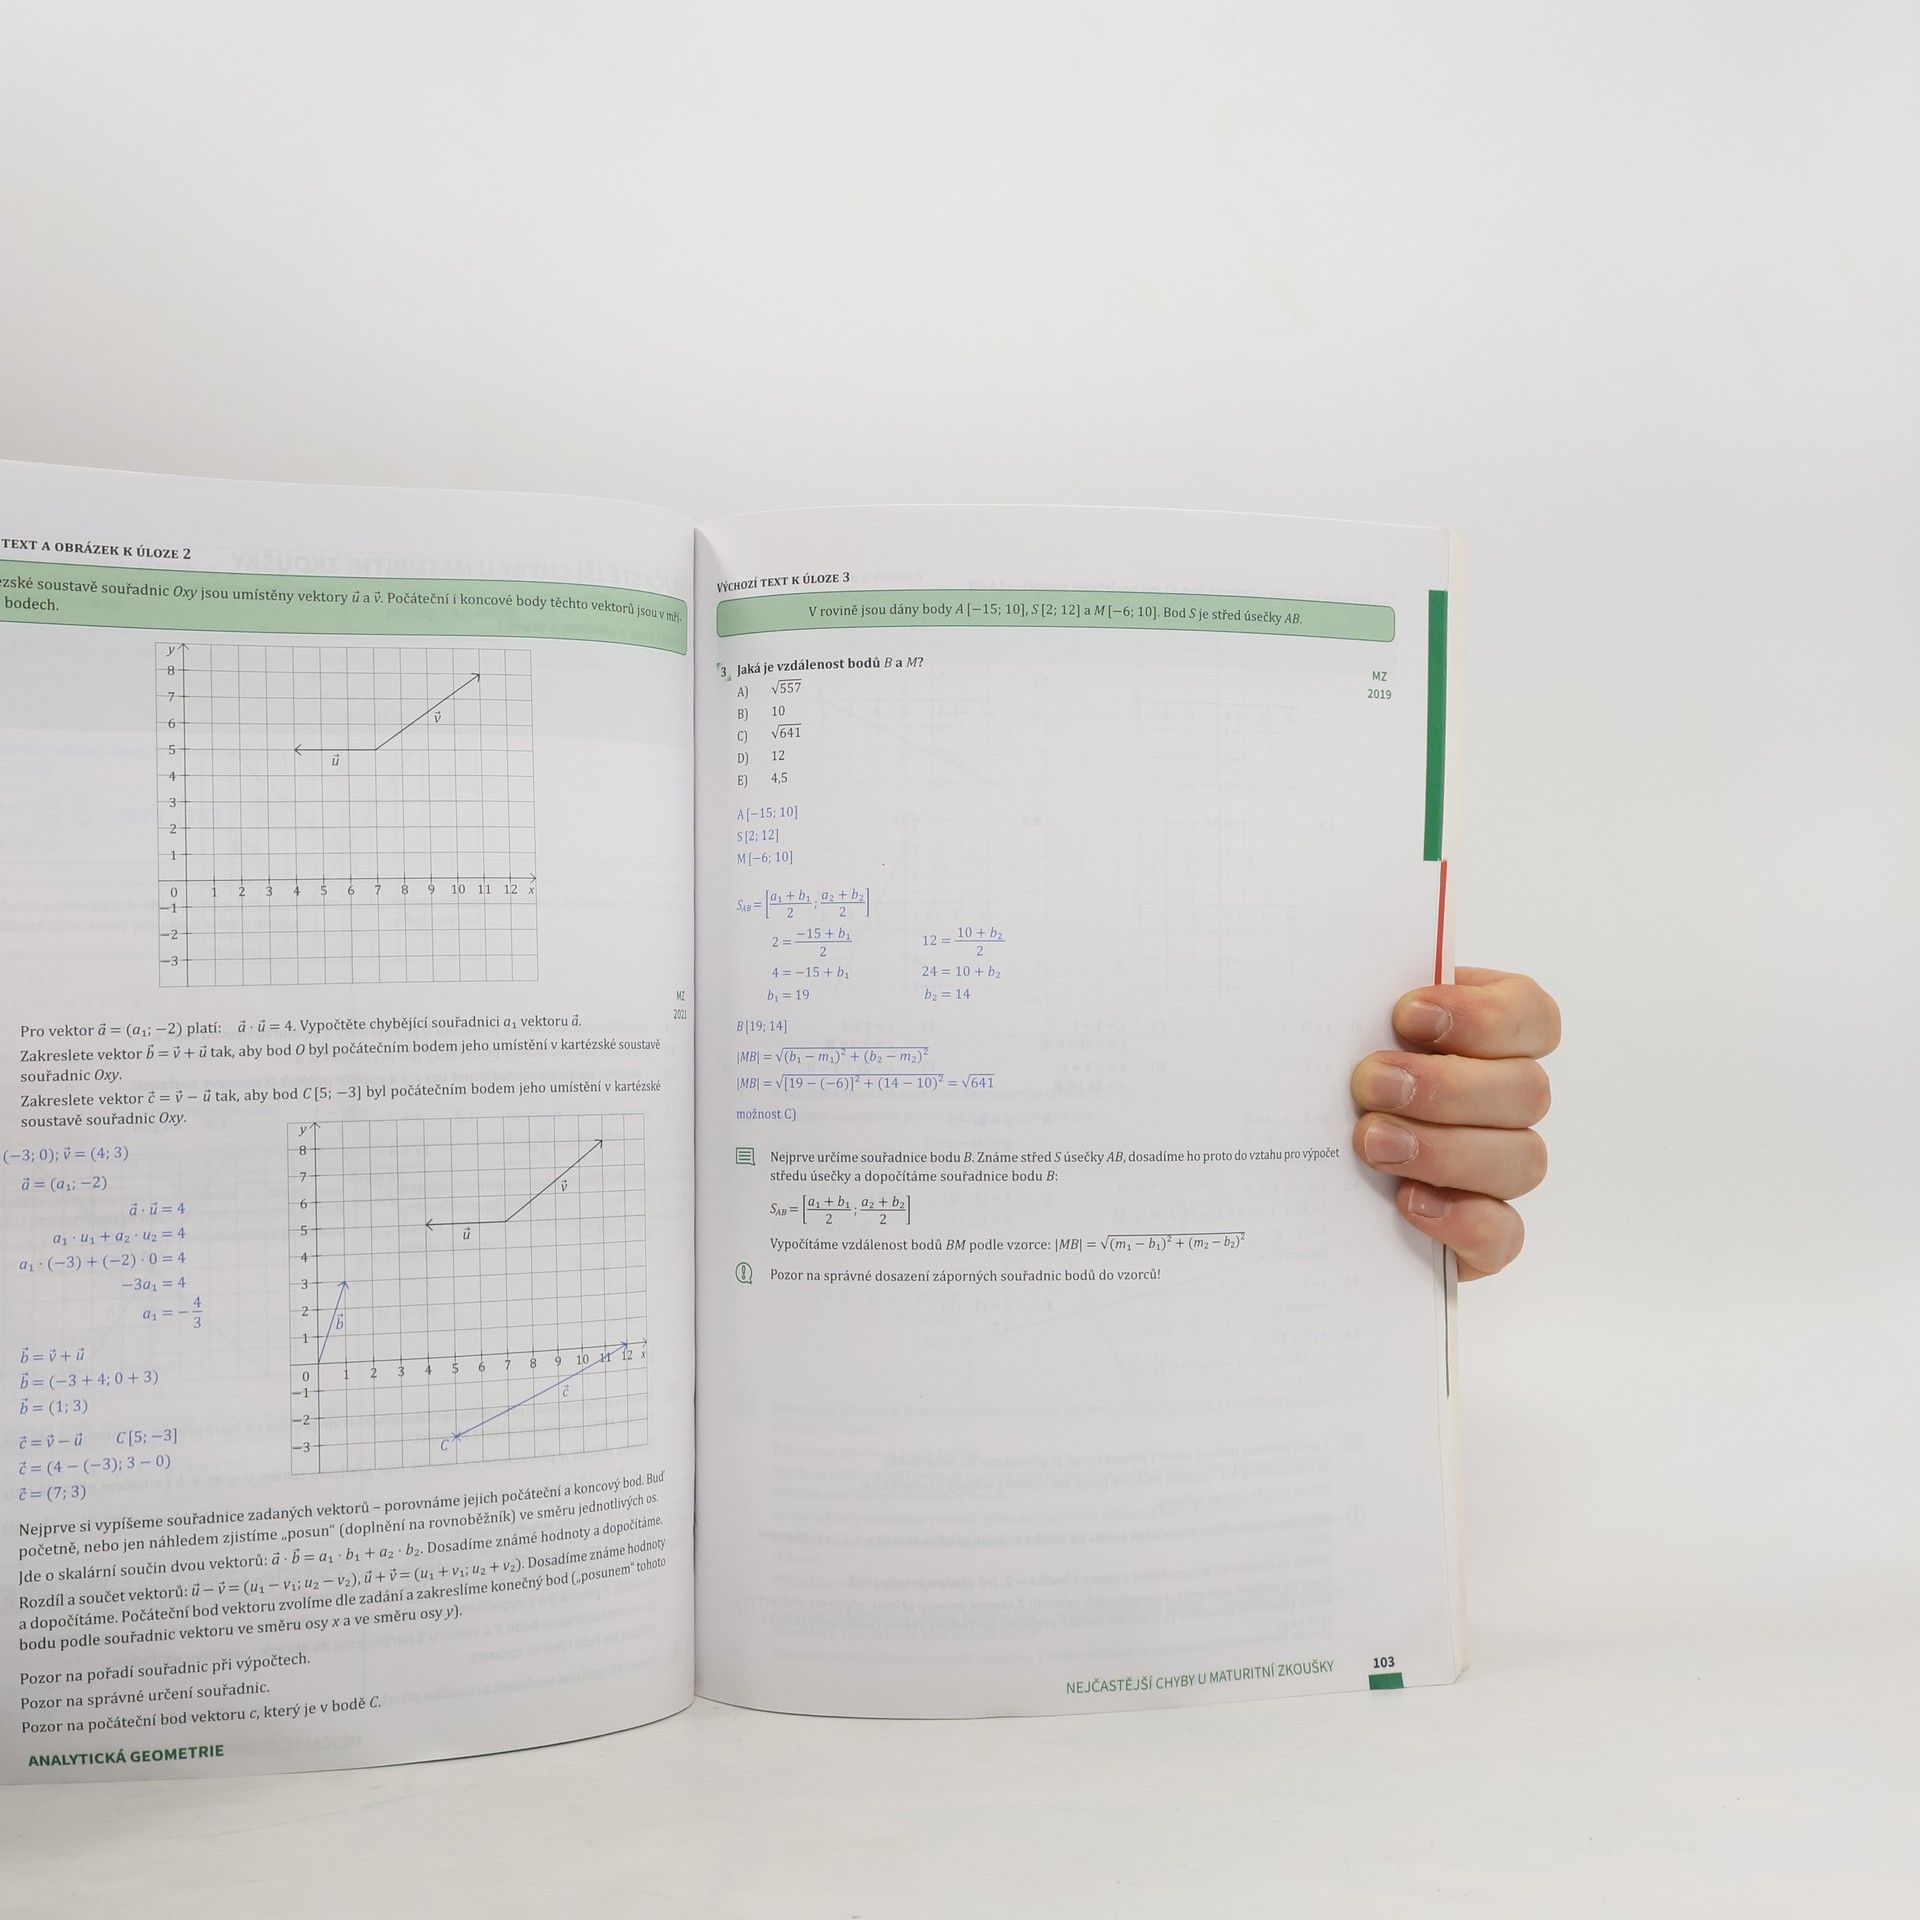 TEXT A OBRÁZEK K ÚLOZE 2
zské soustavě souřadnic Oxy jsou umístěny vektory u⃗ a v⃗. Počáteční i koncové body těchto vektorů jsou v mří-
bodech.
y
8
7
6
5
4
3
2
1
0 1 2 3 4 5 6 7 8 9 10 11 12 x
−1
−2
−3
v⃗
u⃗
MZ
2021
Pro vektor a⃗ = (a₁; −2) platí: a⃗ · u⃗ = 4. Vypočtěte chybějící souřadnici a₁ vektoru a⃗.
Zakreslete vektor b⃗ = v⃗ + u⃗ tak, aby bod O byl počátečním bodem jeho umístění v kartézské soustavě
souřadnic Oxy.
Zakreslete vektor c⃗ = v⃗ − u⃗ tak, aby bod C [5; −3] byl počátečním bodem jeho umístění v kartézské
soustavě souřadnic Oxy.
(−3; 0); v⃗ = (4; 3)
a⃗ = (a₁; −2)
a⃗ · u⃗ = 4
a₁ · u₁ + a₂ · u₂ = 4
a₁ · (−3) + (−2) · 0 = 4
−3a₁ = 4
a₁ = −4/3
b⃗ = v⃗ + u⃗
b⃗ = (−3 + 4; 0 + 3)
b⃗ = (1; 3)
c⃗ = v⃗ − u⃗ C [5; −3]
c⃗ = (4 − (−3); 3 − 0)
c⃗ = (7; 3)
y
8
7
6
5
4
3
2
1
0 1 2 3 4 5 6 7 8 9 10 11 12 x
−1
−2
−3
v⃗
u⃗
b⃗
c⃗
C
Nejprve si vypíšeme souřadnice zadaných vektorů – porovnáme jejich počáteční a koncový bod. Buď
početně, nebo jen náhledem zjistíme „posun“ (doplnění na rovnoběžník) ve směru jednotlivých os.
Jde o skalární součin dvou vektorů: a⃗ · b⃗ = a₁ · b₁ + a₂ · b₂. Dosadíme známé hodnoty a dopočítáme.
Rozdíl a součet vektorů: u⃗ − v⃗ = (u₁ − v₁; u₂ − v₂), u⃗ + v⃗ = (u₁ + v₁; u₂ + v₂). Dosadíme známé hodnoty
a dopočítáme. Počáteční bod vektoru zvolíme dle zadání a zakreslíme konečný bod („posunem“ tohoto
bodu podle souřadnic vektoru ve směru osy x a ve směru osy y).
Pozor na pořadí souřadnic při výpočtech.
Pozor na správné určení souřadnic.
Pozor na počáteční bod vektoru c, který je v bodě C.
ANALYTICKÁ GEOMETRIE
VÝCHOZÍ TEXT K ÚLOZE 3
V rovině jsou dány body A [−15; 10], S [2; 12] a M [−6; 10]. Bod S je střed úsečky AB.
3 Jaká je vzdálenost bodů B a M?
MZ
2019
A) √557
B) 10
C) √641
D) 12
E) 4,5
A [−15; 10]
S [2; 12]
M [−6; 10]
S_AB = [(a₁ + b₁)/2; (a₂ + b₂)/2]
2 = (−15 + b₁)/2 12 = (10 + b₂)/2
4 = −15 + b₁ 24 = 10 + b₂
b₁ = 19 b₂ = 14
B [19; 14]
|MB| = √((b₁ − m₁)² + (b₂ − m₂)²)
|MB| = √([19 − (−6)]² + (14 − 10)²) = √641
možnost C)
Nejprve určíme souřadnice bodu B. Známe střed S úsečky AB, dosadíme ho proto do vztahu pro výpočet
středu úsečky a dopočítáme souřadnice bodu B:
S_AB = [(a₁ + b₁)/2; (a₂ + b₂)/2]
Vypočítáme vzdálenost bodů BM podle vzorce: |MB| = √((m₁ − b₁)² + (m₂ − b₂)²)
Pozor na správné dosazení záporných souřadnic bodů do vzorců!
NEJČASTĚJŠÍ CHYBY U MATURITNÍ ZKOUŠKY 103